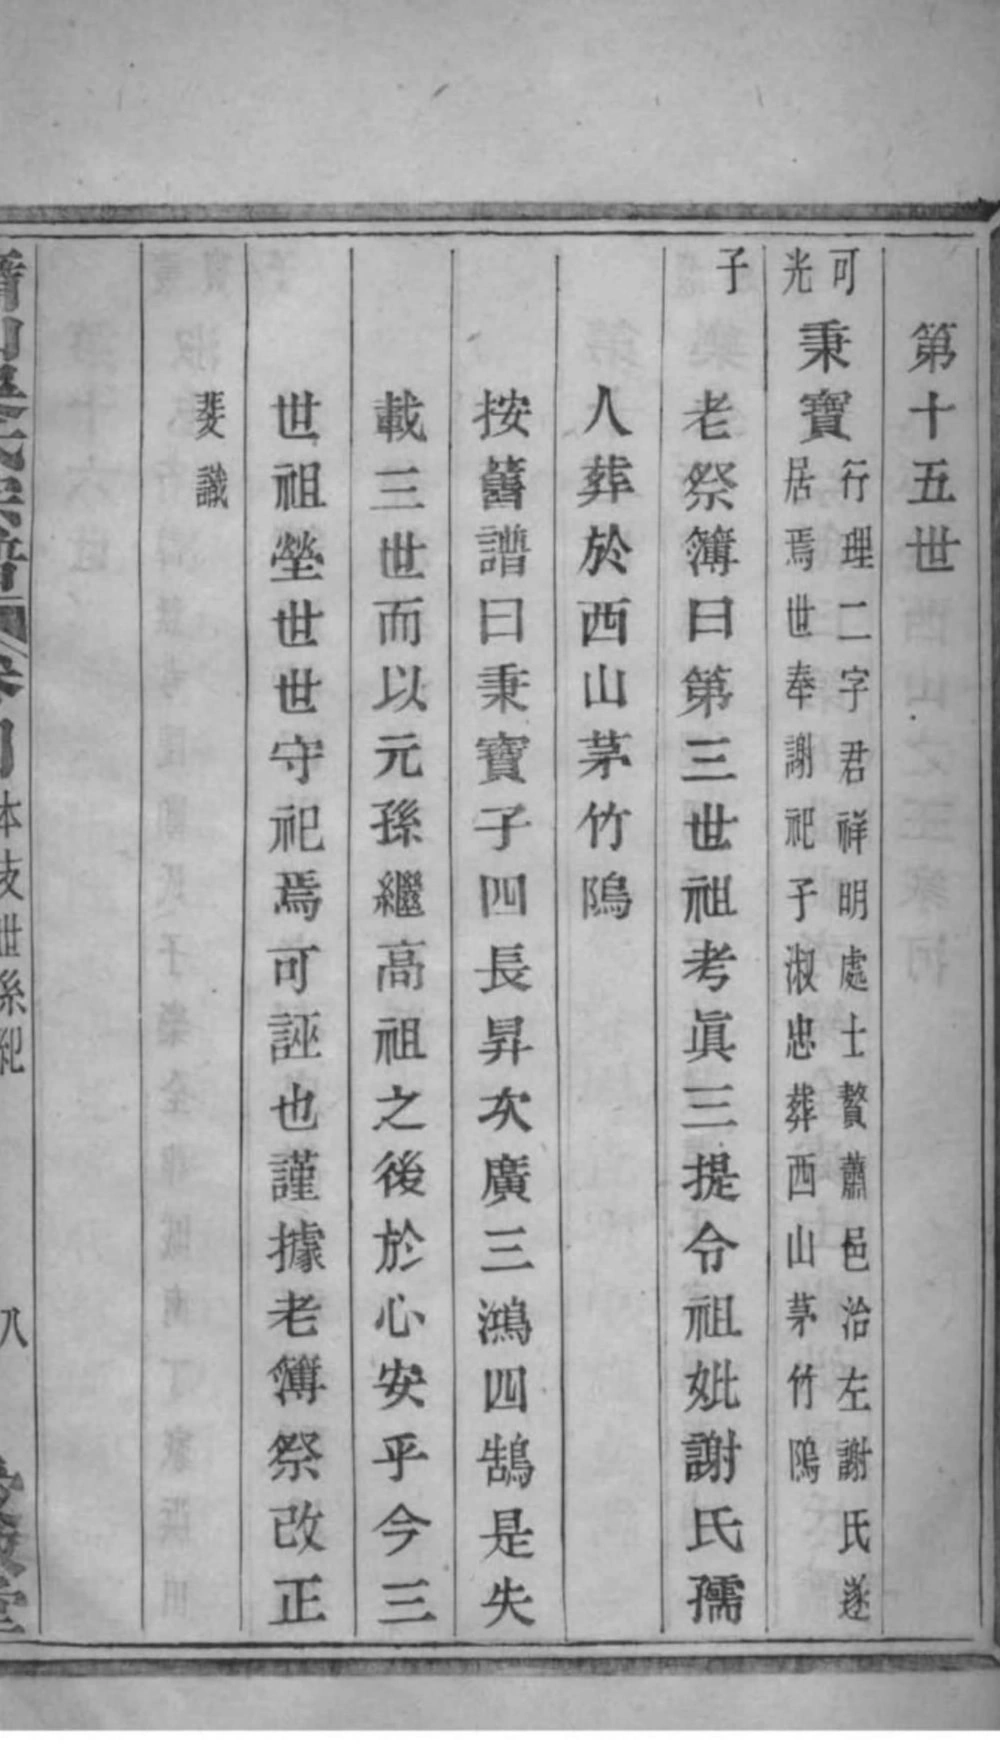 第十五世
可光子
秉寶
行理二字君祥明處士贅蕭邑治左謝氏遂
居焉世奉謝祀子淑忠葬西山茅竹隖
老祭簿曰第三世祖考眞三提令祖妣謝氏孺
人葬於西山茅竹隖
按舊譜曰秉寶子四長昇次廣三鴻四鵠是失
載三世而以元孫繼高祖之後於心安乎今三
世祖塋世世守祀焉可誣也謹據老簿祭改正
斐識
氏宗譜 卷 本支世系紀
八
堂